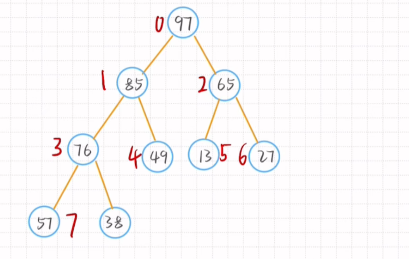 0 97
1 85 2 65
3 76 4 49 13 5 6 27
57 7 38